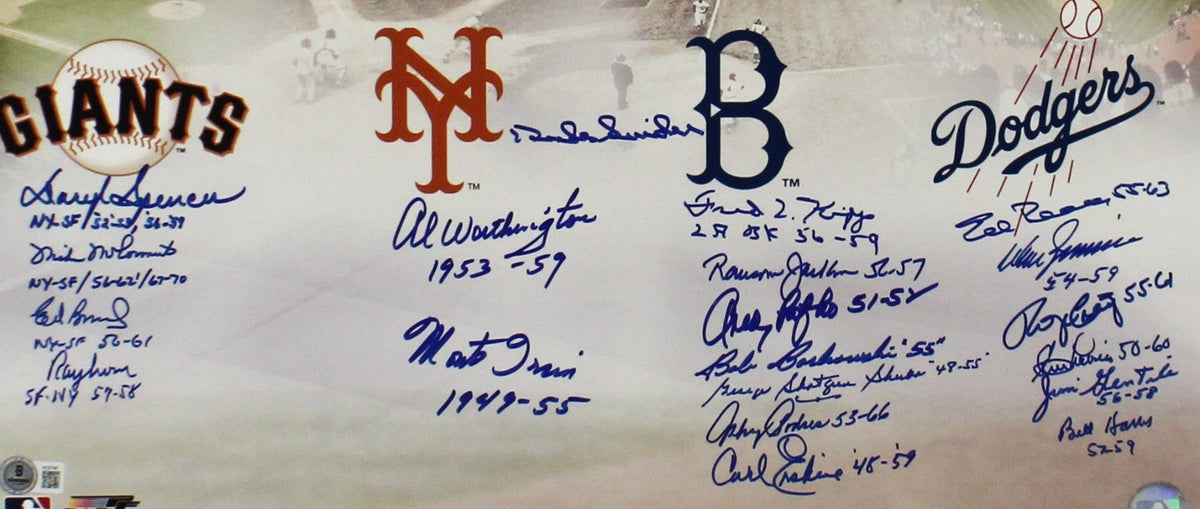 GIANTS
NY
TM
Duke Snider
B
TM
Dodgers
Daryl Spencer
NY-SF/'52-'53, '56-'59
Mike McCormick
NY-SF/56-62'/67-70
Ed Bressoud
NY-SF 56-61
Ray Crone
SF-NY 57-58
Al Worthington
1953-59
Monte Irvin
1949-55
Fred L. Kipp
56-59
Ransom Jackson 56-57
Andy Pafko 51-52
Bob Borkowski "55"
George Shotgun Shuba "48-55"
Johnny Podres 53-66
Carl Erskine '48-'59
Ed Roebuck 55-63
54-59
Roger Craig 55-61
50-60
Jim Gentile
56-58
Bill Harris
52-59